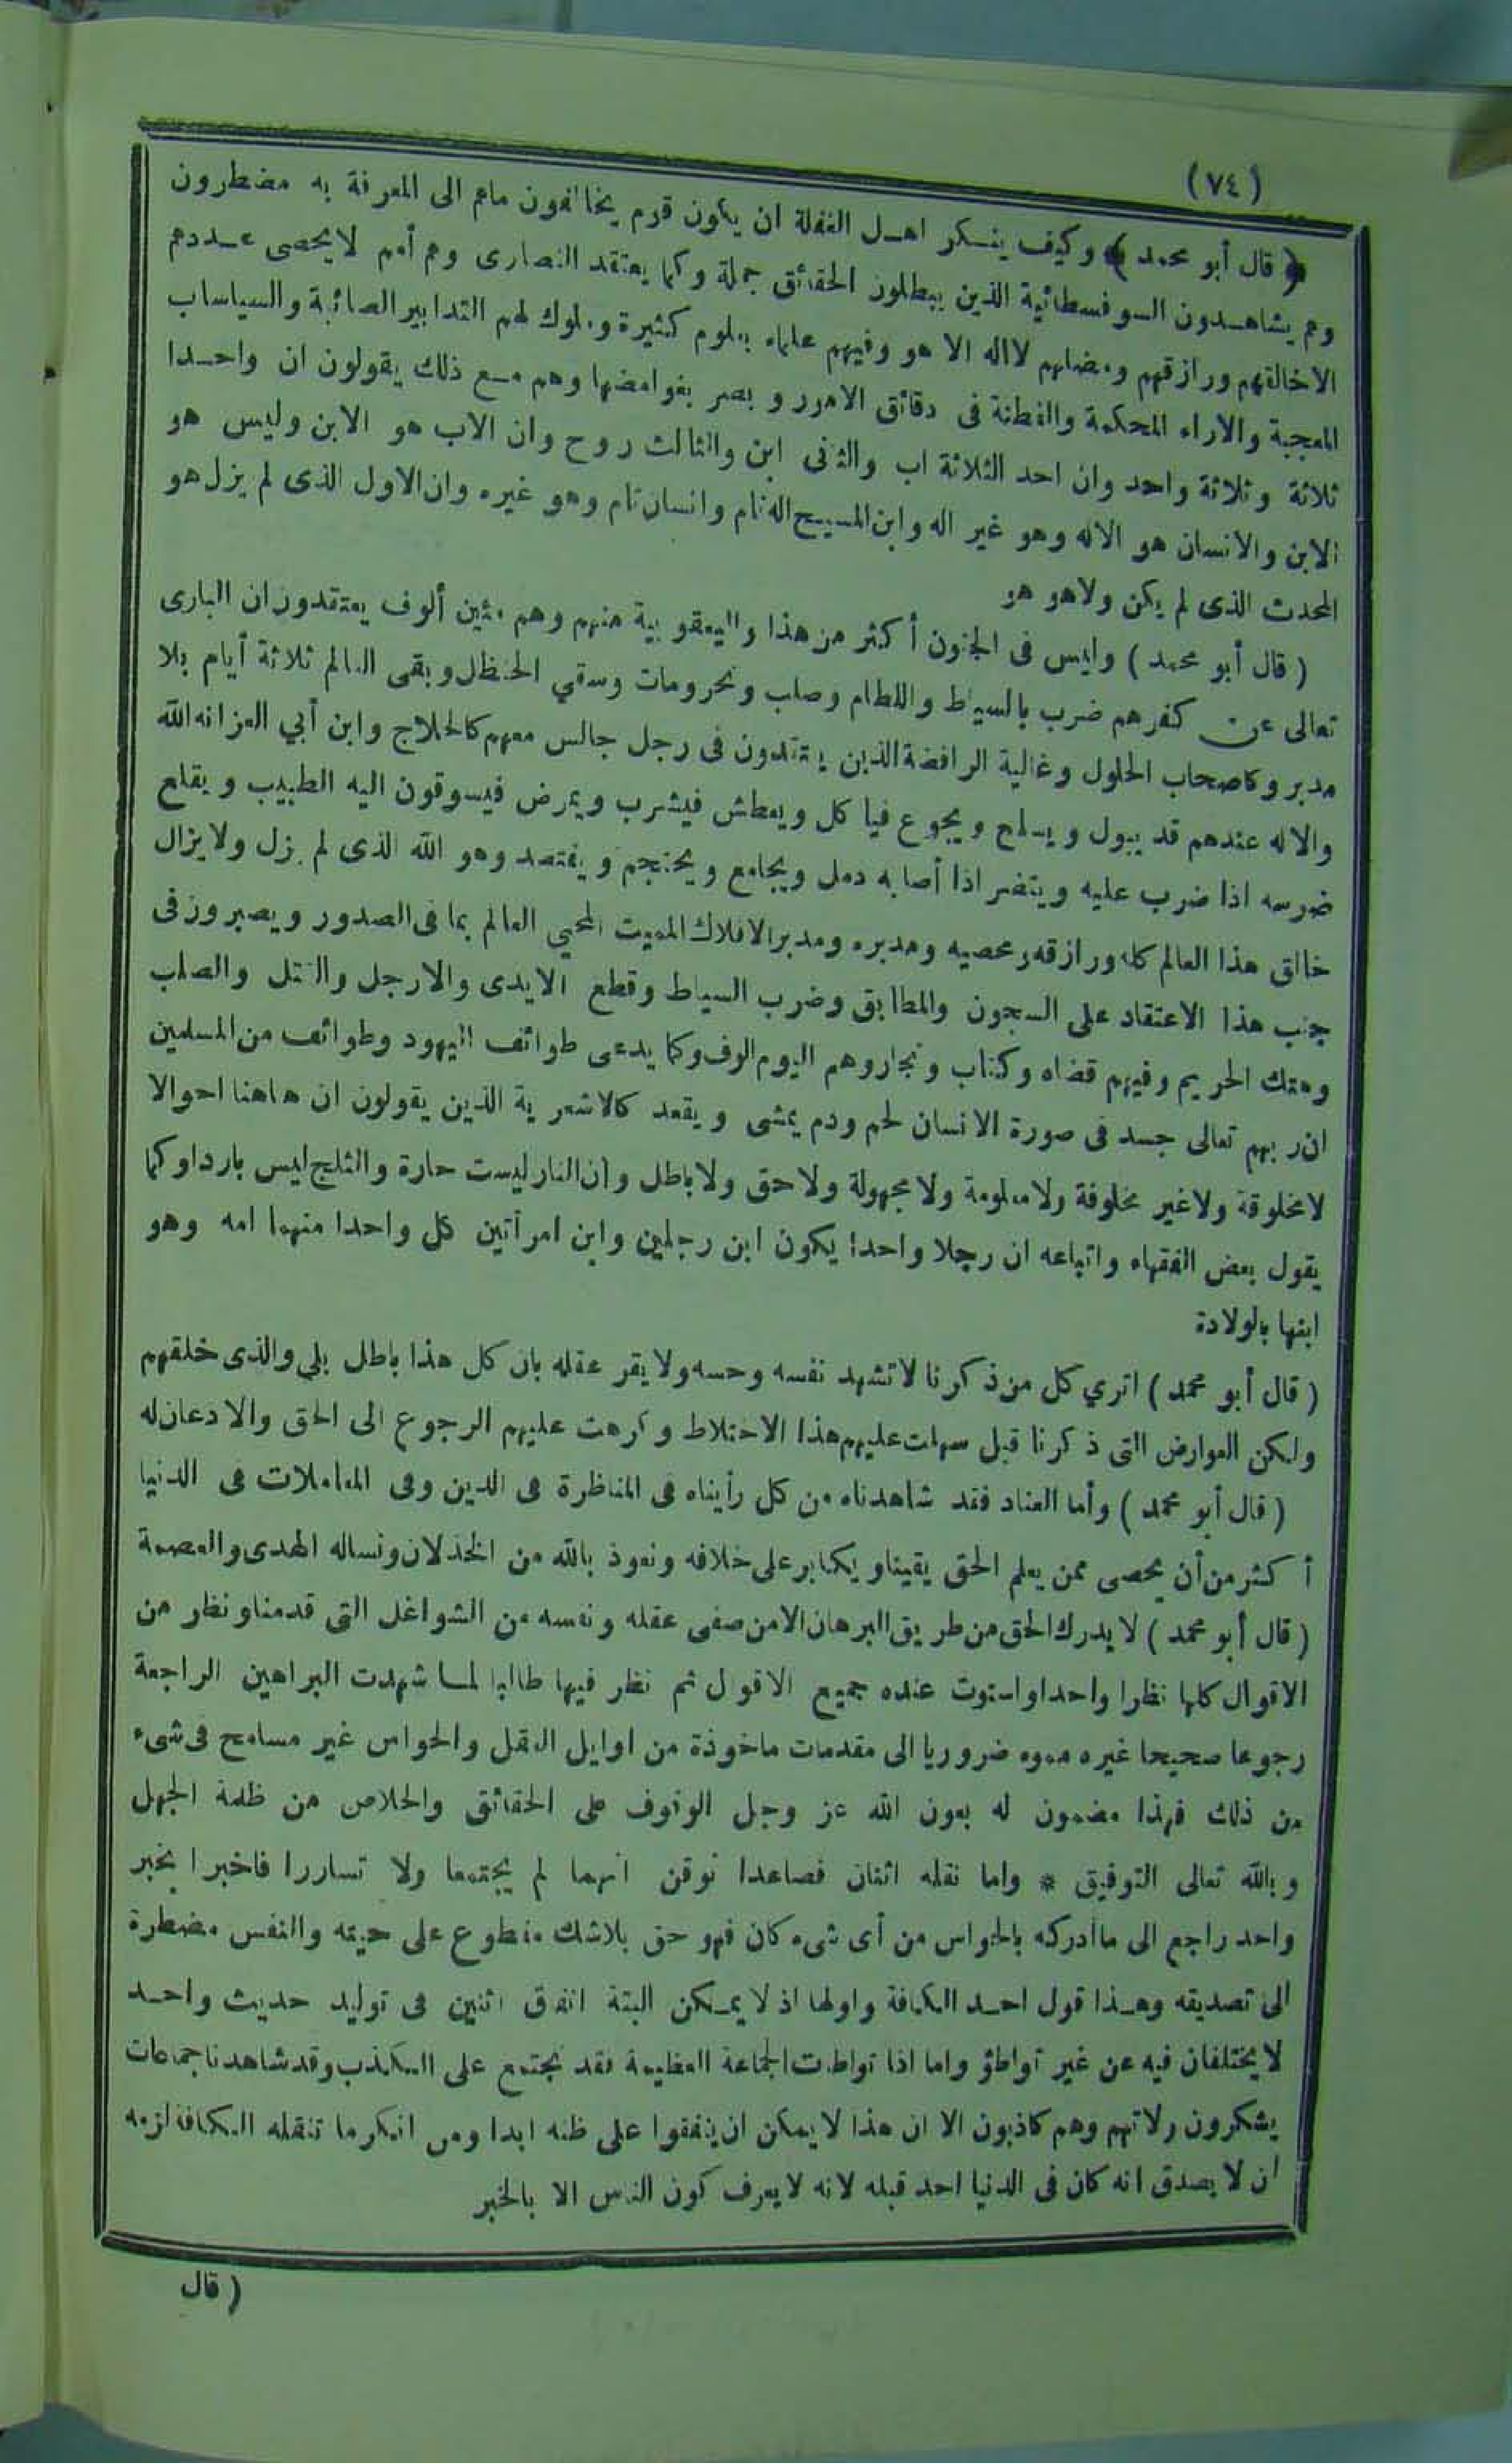 (٧٤)
﴿ قال أبو محمد ﴾ وكيف ينسكر اهل الغفلة ان يكون قوم يخالفون ماهم الى المعرفة به مضطرون
وهم يشاهدون السوفسطائية الذين يبطلون الحقائق جملة وكما يعتقد النصارى وهم أمم لا يحصى عددهم
الا خالقهم ورازقهم ومضلهم لا اله الا هو وفيهم علماء بعلوم كثيرة وملوك لهم التدابير الصائبة والسياسات
المعجبة والاراء المحكمة والفطنة فى دقائق الامور وبصر بغوامضها وهم مع ذلك يقولون ان واحدا
ثلاثة وثلاثة واحد وان احد الثلاثة اب والثانى ابن والثالث روح وان الاب هو الابن وليس هو
الابن والانسان هو الاله وهو غير اله وابن المسيح اله تام وانسان تام وهو غيره وان الاول الذى لم يزل هو
المحدث الذى لم يكن ولا هو هو
( قال أبو محمد ) وليس فى الجنون أكثر من هذا واليعقوبية منهم وهم مئين ألوف يعتقدون ان البارى
تعالى عن كفرهم ضرب بالسياط واللطام وصلب ونحر ومات وسقي الحنظل وبقى العالم ثلاثة أيام بلا
مدبر وكاصحاب الحلول وغالية الرافضة الذين يعتقدون فى رجل جالس معهم كالحلاج وابن أبي العز انه الله
والاله عندهم قد يبول ويسلح ويجوع فيأكل ويعطش فيشرب ويمرض فيسوقون اليه الطبيب ويقلع
ضرسه اذا ضرب عليه ويتضر اذا أصابه دمل ويجامع ويحتجم ويفتصد وهو الله الذى لم يزل ولا يزال
خالق هذا العالم كله ورازقه ومحصيه ومدبره ومدبر الافلاك المميت المحيي العالم بما فى الصدور ويصبرون فى
جنب هذا الاعتقاد على السجون والمطابق وضرب السياط وقطع الايدى والارجل والقتل والصلب
وهتك الحريم وفيهم قضاه وكتاب وتجار وهم اليوم الوف وكما يدعى طوائف اليهود وطوائف من المسلمين
ان ربهم تعالى جسد فى صورة الانسان لحم ودم يمشى ويقعد كالاشعرية الذين يقولون ان هاهنا احوالا
لا مخلوقة ولا غير مخلوقة ولا معلومة ولا مجهولة ولا حق ولا باطل وان النار ليست حارة والثلج ليس باردا وكما
يقول بعض الفقهاء واتباعه ان رجلا واحدا يكون ابن رجلين وابن امرأتين كل واحدا منهما امه وهو
ابنها بالولادة
( قال أبو محمد ) اتري كل من ذكرنا لا تشهد نفسه وحسه ولا يقر عقله بان كل هذا باطل بلى والذى خلقهم
ولكن العوارض التى ذكرنا قبل سهلت عليهم هذا الاختلاط وكرهت عليهم الرجوع الى الحق والاذعان له
( قال أبو محمد ) وأما العناد فقد شاهدناه من كل رأيناه فى المناظرة فى الدين وفى المعاملات فى الدنيا
أكثر من أن يحصى ممن يعلم الحق يقينا ويكابر على خلافه ونعوذ بالله من الخذلان ونساله الهدى والعصمة
( قال أبو محمد ) لا يدرك الحق من طريق البرهان الا من صفى عقله ونفسه من الشواغل التى قدمنا ونظر من
الاقوال كلها نظرا واحدا واستوت عنده جميع الاقول ثم نظر فيها طالبا لما شهدت البراهين الراجعة
رجوعا صحيحا غيره مموه ضروريا الى مقدمات ماخوذة من اوايل العقل والحواس غير مسامح فى شىء
من ذلك فهذا مضمون له بعون الله عز وجل الوقوف على الحقائق والخلاص من ظلمة الجهل
وبالله تعالى التوفيق * واما نقله اثنان فصاعدا نوقن انهما لم يجتمعا ولا تساررا فاخبرا بخبر
واحد راجع الى ما أدركه بالحواس من أى شىء كان فهو حق بلا شك مقطوع على غيبه والنفس مضطرة
الى تصديقه وهذا قول احد الكافة واولها اذ لا يمكن البتة اتفاق اثنين فى توليد حديث واحد
لا يختلفان فيه عن غير تواطؤ واما اذا تواطت الجماعة العظيمة فقد تجتمع على الكذب وقد شاهدنا جماعات
يشكرون ولاتهم وهم كاذبون الا ان هذا لا يمكن ان يتفقوا على ظنه ابدا ومن انكر ما تنقله الكافة لزمه
ان لا يصدق انه كان فى الدنيا احد قبله لانه لا يعرف كون الناس الا بالخبر
( قال